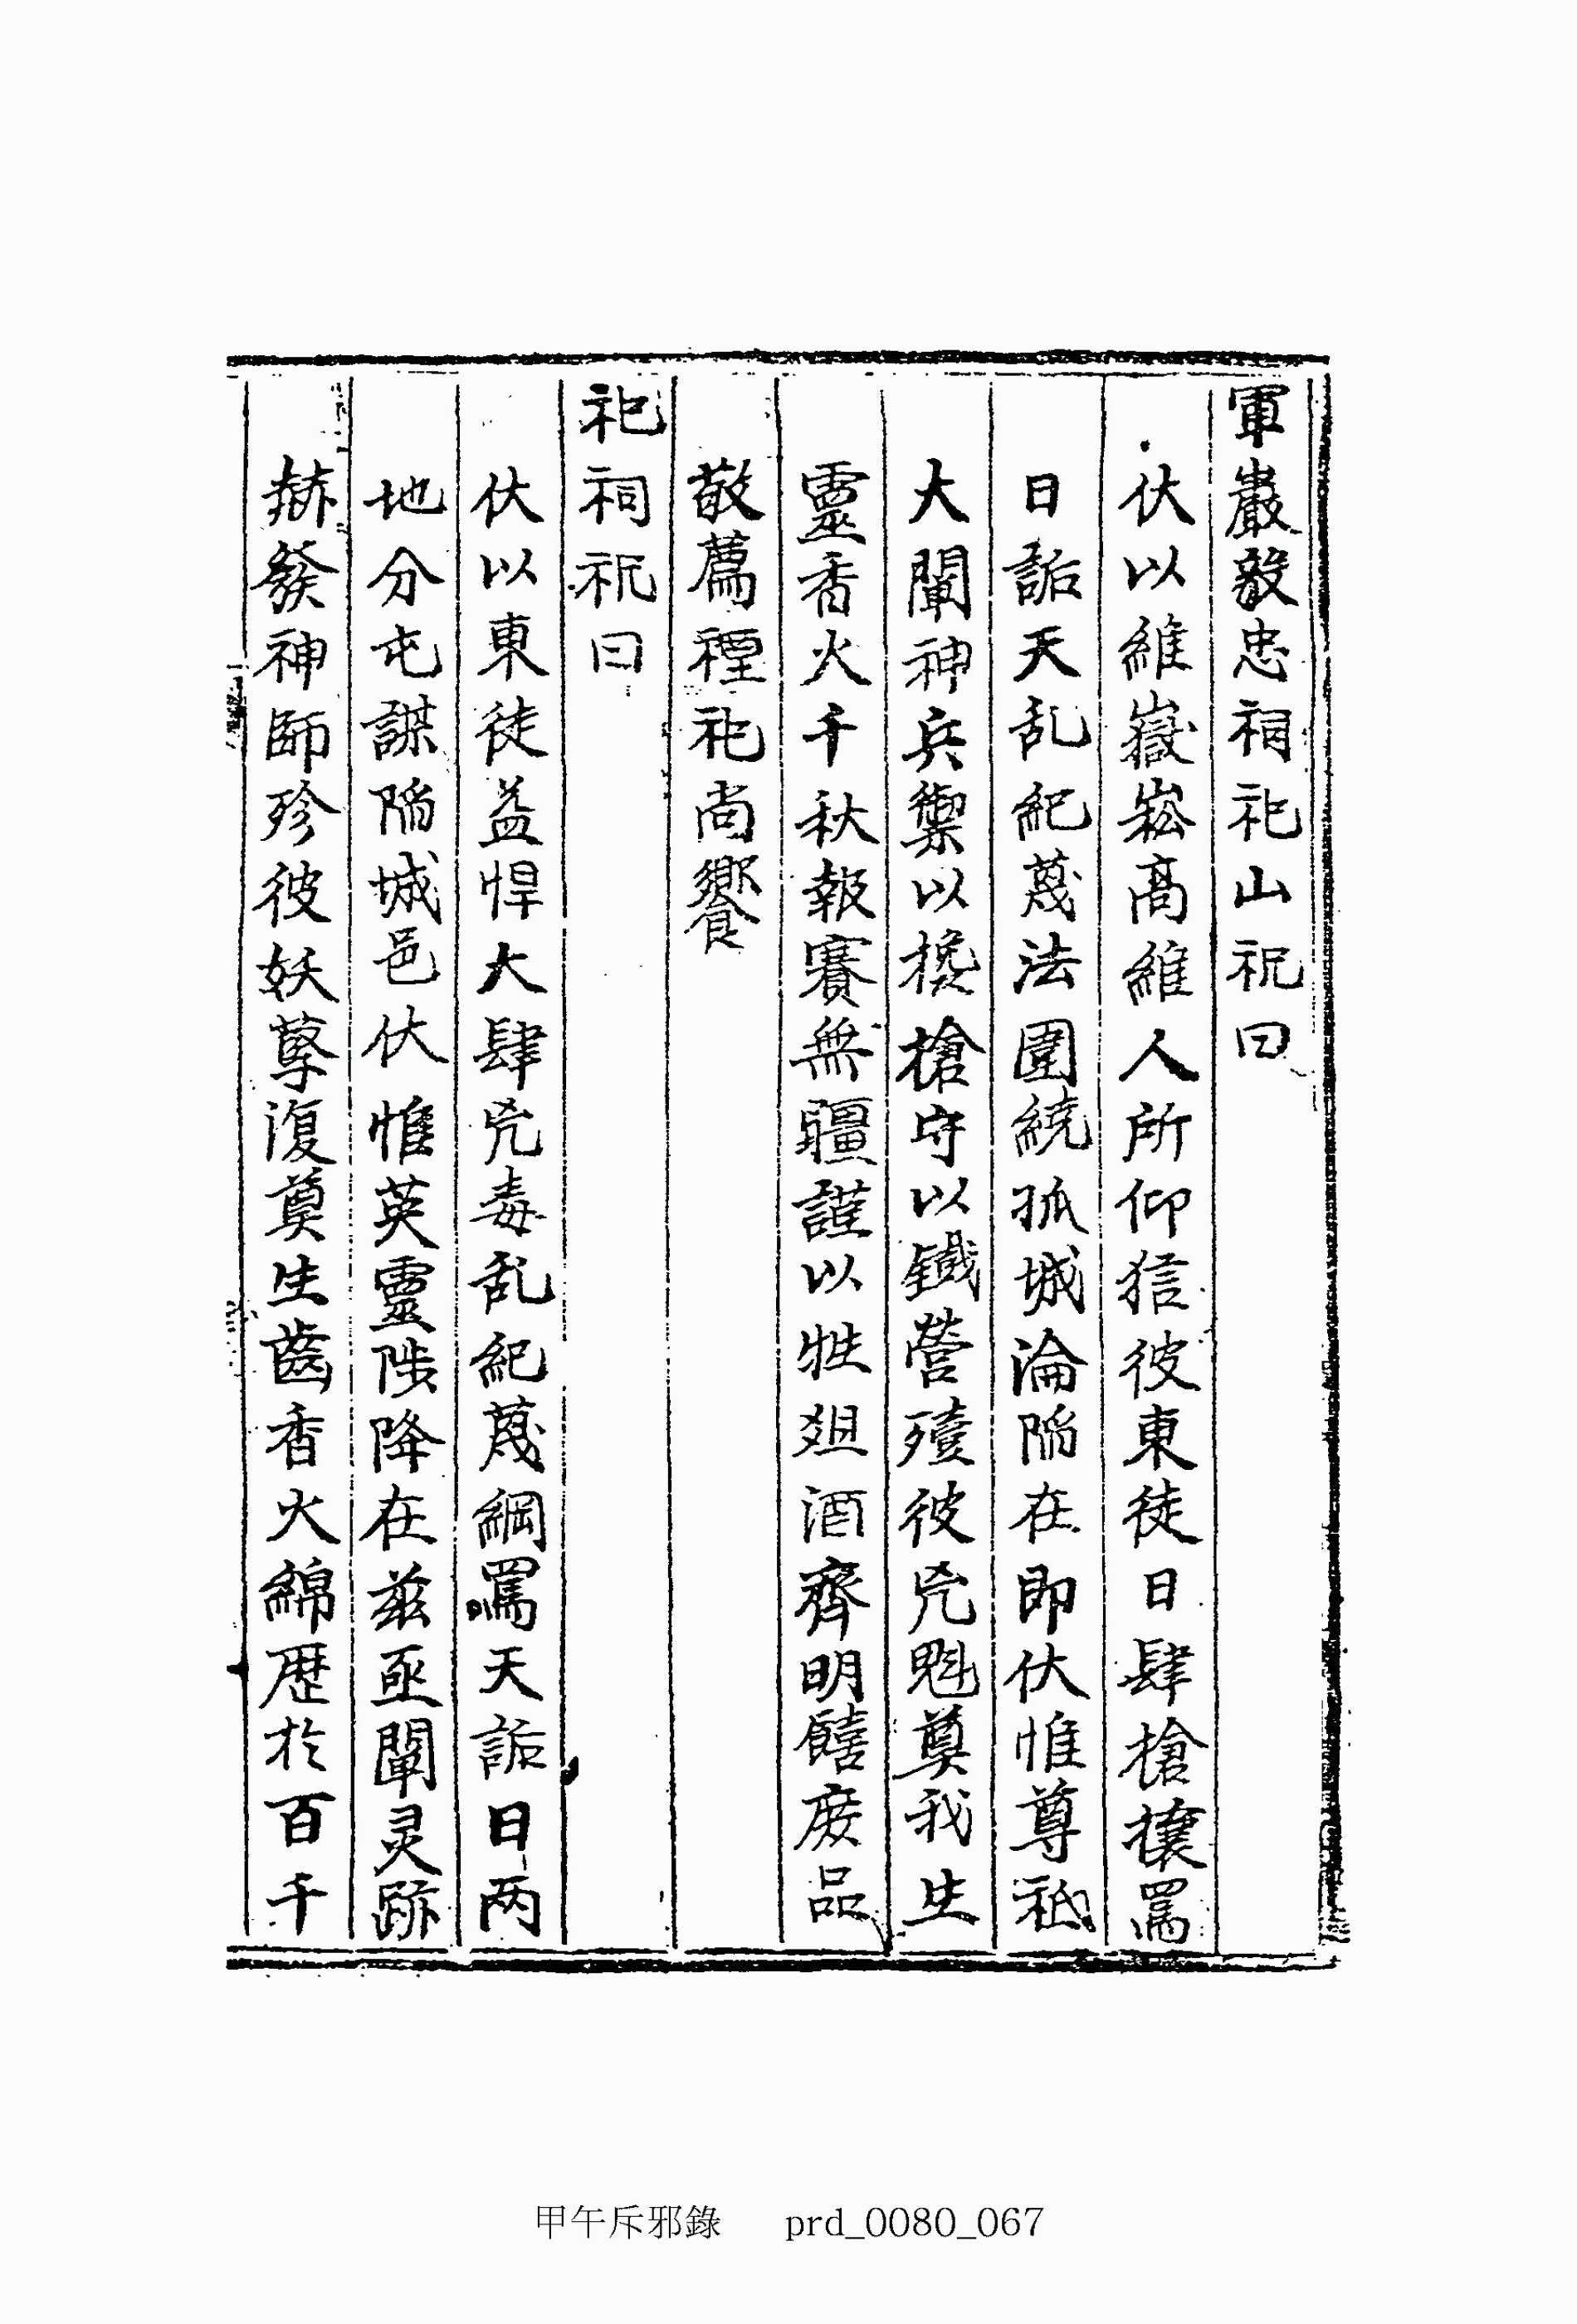 軍巖毅忠祠祀山祝曰
伏以維嶽崧高維人所仰狺彼東徒日肆搶攘罵
日詬天乱紀蔑法圍繞孤城淪陷在即伏惟尊祗
大闡神兵禦以攙搶守以鐵營殪彼兇魁奠我生
靈香火千秋報賽無疆謹以牲俎酒齊明饎庶品
敬薦禋祀尚饗
祀祠祝曰
伏以東徒益悍大肆兇毒乱紀蔑綱罵天詬日两
地分屯謀陷城邑伏惟英靈陟降在兹亟闡灵跡
赫發神師殄彼妖孽復奠生齒香火綿歷於百千
甲午斥邪錄 prd_0080_067